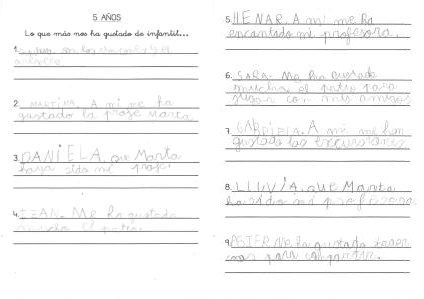 5 AÑOS
Lo que más nos ha gustado de infantil...
1.
arenero.
2. MARTINA. A mi me ha
gustado la profe Marta
3. DANIELA. que Marta
haya sido mi profe.
4. IZAN. Me ha gustado
mucho el patio.
5. HENAR. A mi me ha
encantado mi profesora.
6. SARA. Me ha gustado
mucho el patio para
jugar con mis amigos
7. GABRIELA. A mi me han
gustado las excursiones
8. LLUVIA. QUE Marta
ha sido mi profesora
9. ASIER Me ha gustado traer
cosas para compartir.